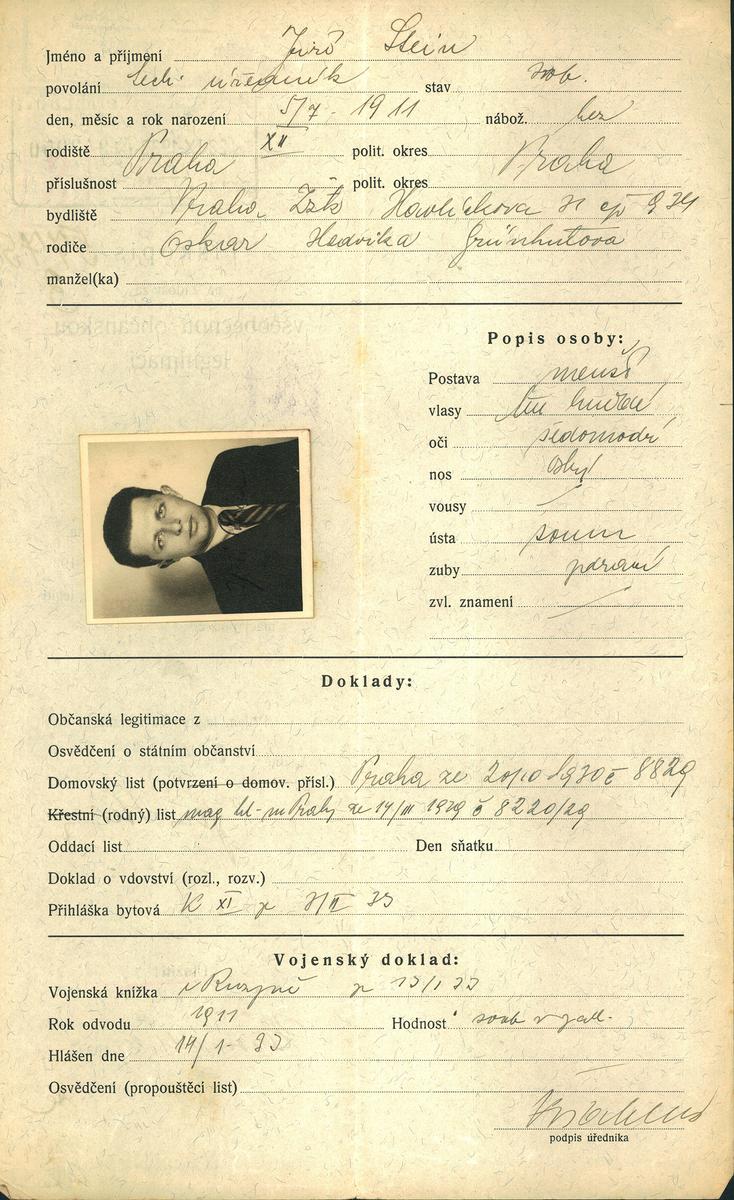 Jméno a příjmení Jiří Stein
povolání tech. úředník stav svob.
den, měsíc a rok narození 5/7. 1911 nábož. bez
rodiště Praha XII polit. okres Praha
příslušnost polit. okres
bydliště Praha Žižk Havlíčkova 21 čp 934
rodiče Oskar Hedvika Grünhutova
manžel(ka)
všeobecnou občanskou
legitimaci
Popis osoby:
Postava menší
vlasy tm hnědé
oči šedomodré
nos obyč
vousy
ústa soum
zuby zdravé
zvl. znamení
Doklady:
Občanská legitimace z
Osvědčení o státním občanství
Domovský list (potvrzení o domov. přísl.) Praha ze 20/10 1930 č 8829
Křestní (rodný) list mag hl. m Prahy ze 14/III 1929 č 8220/29
Oddací list Den sňatku
Doklad o vdovství (rozl., rozv.)
Přihláška bytová K XI z
Vojenský doklad:
Vojenská knížka v Ruzyně z 13/1 33
Rok odvodu 1911 Hodnost
Hlášen dne 14/1. 33
Osvědčení (propouštěcí list)
podpis úředníka